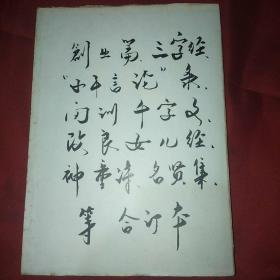 創业篇、三字经、
"小千言论"
闺训千字文、
改良女儿经、
神童诗、名贤集、
等 合订本